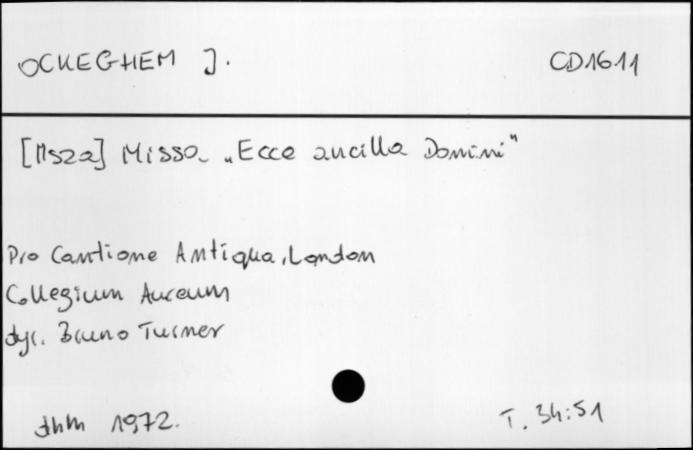 OCKEGHEM J. CD1611
[Msza] Missa „Ecce ancilla Domini"
Pro Cantione Antiqua, London
Collegium Aureum
dyr. Bruno Turner
dhm 1972. T. 34:51